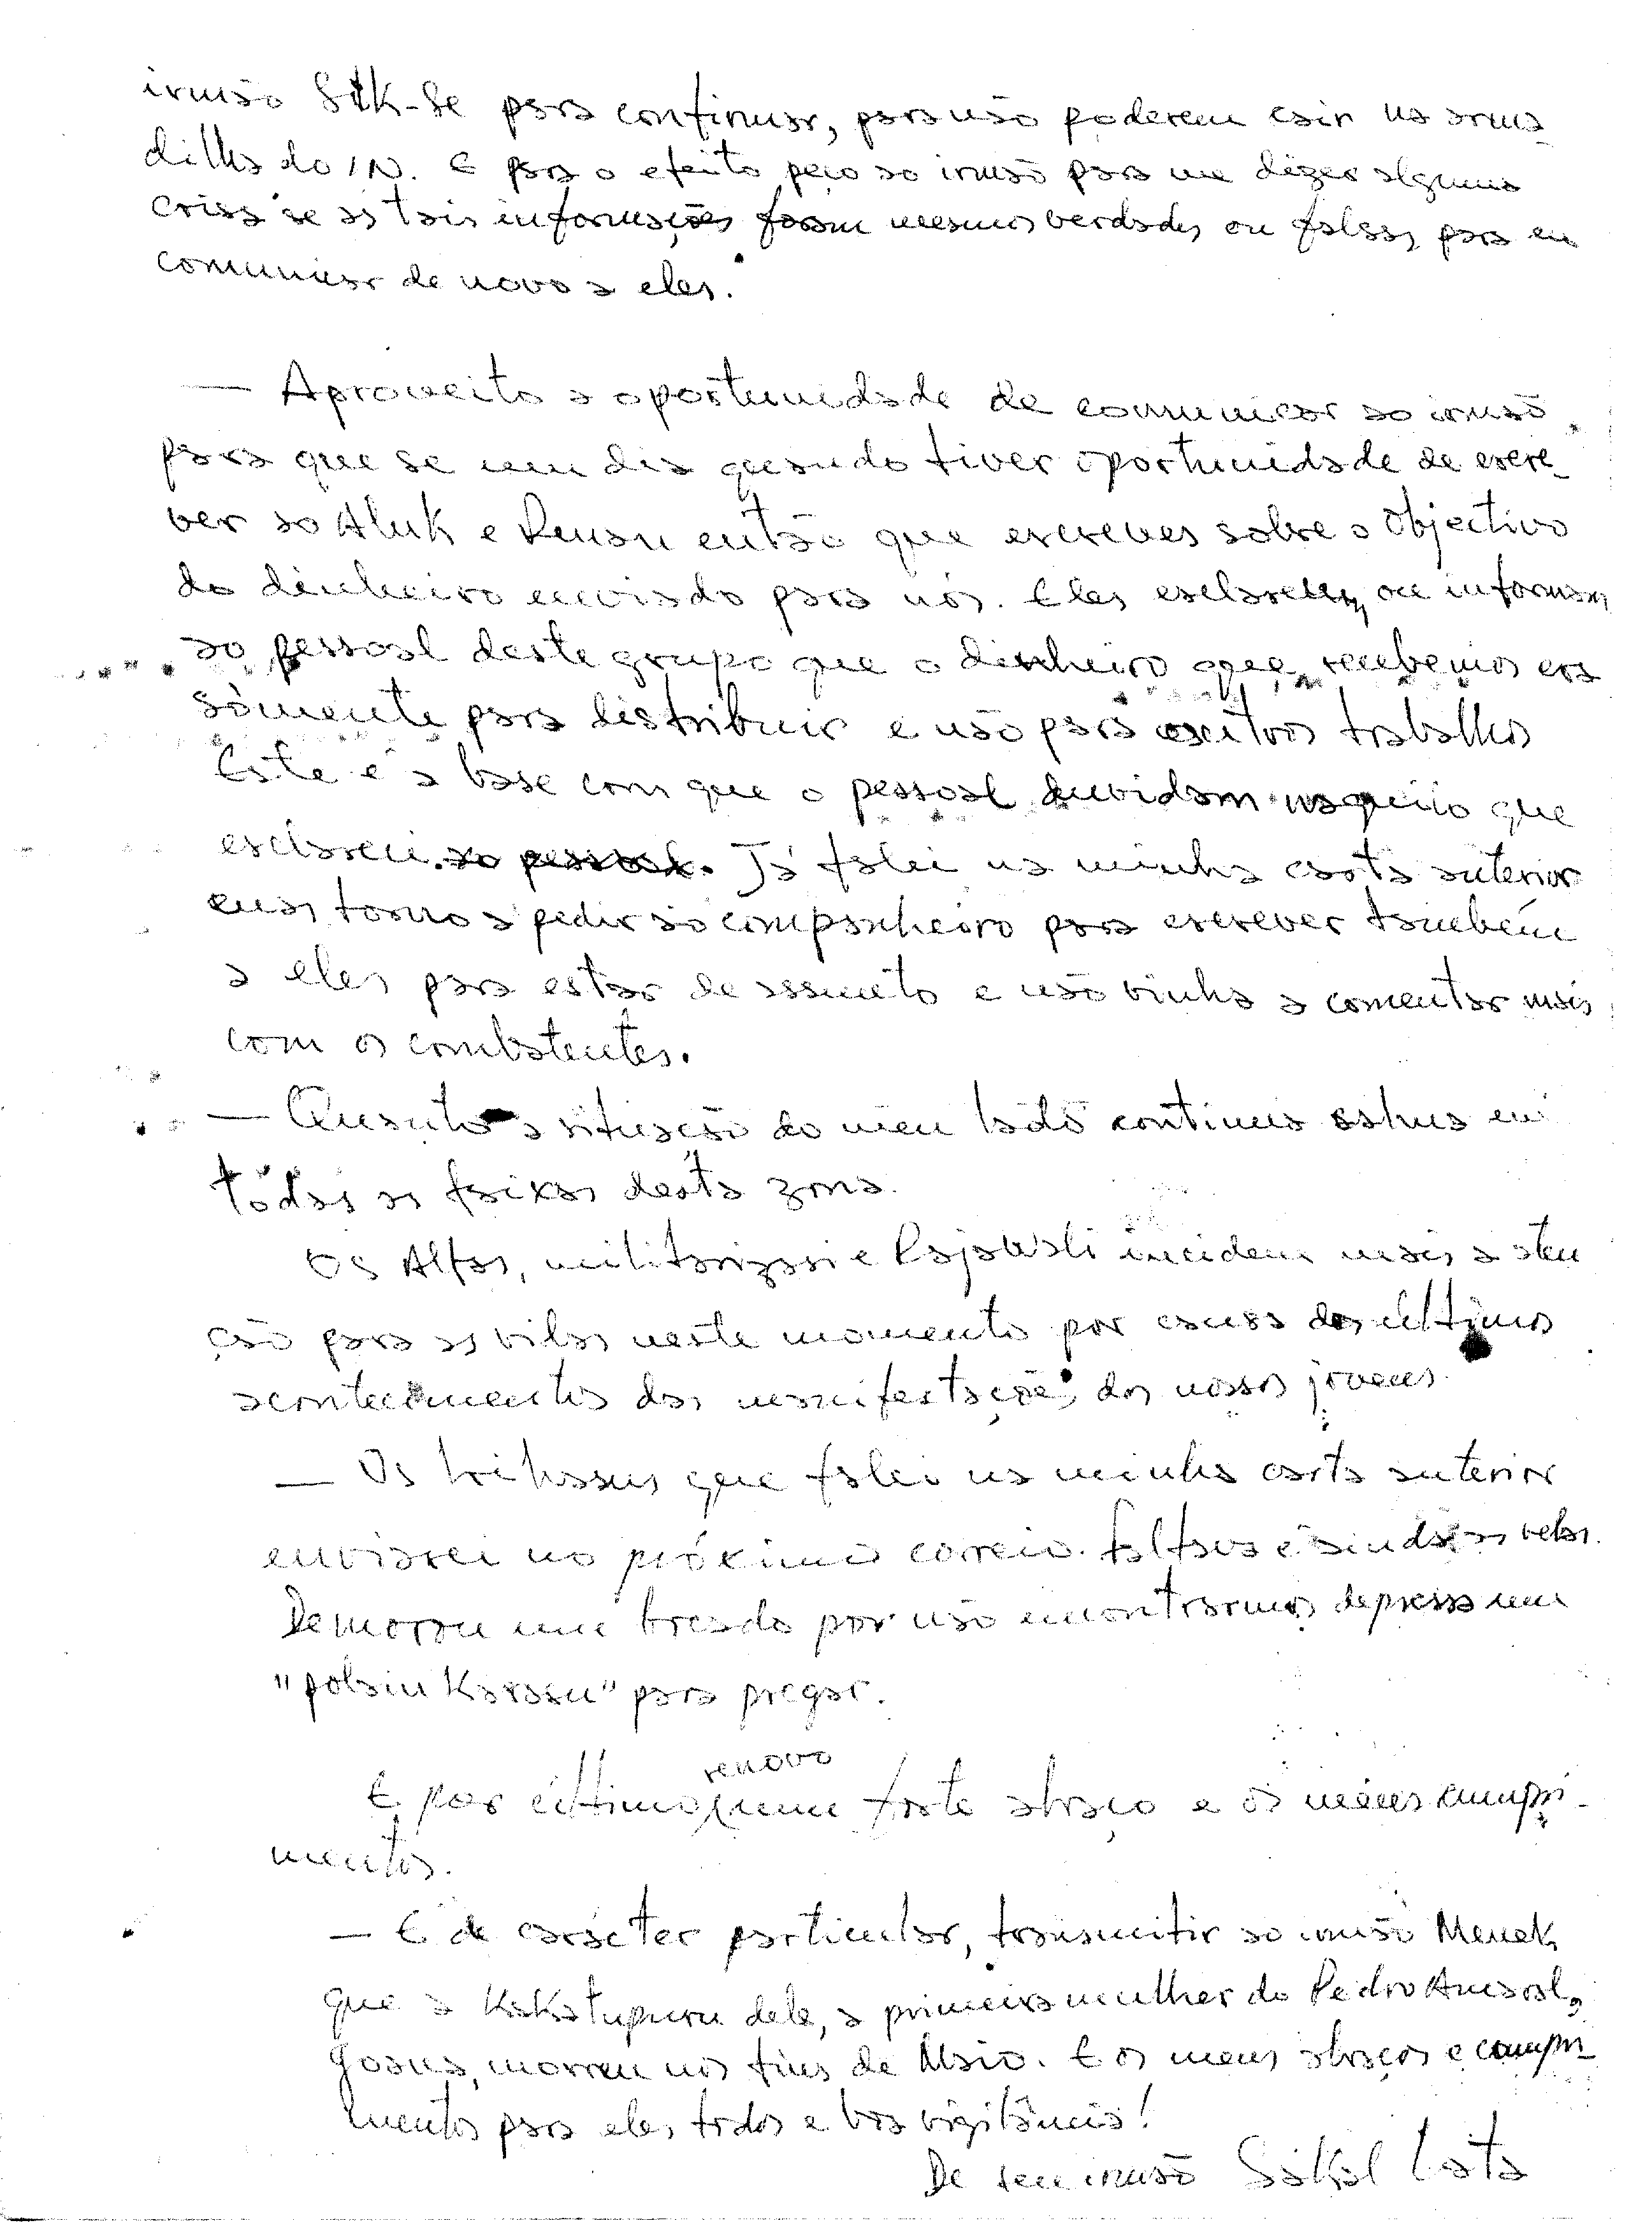 irmão Stk-Se para continuar, para não poderem cair na arma-
dilha do IN. E para o efeito peço ao irmão para me dizer alguma
coisa se as tais informações foram mesmos verdades ou falsas, para eu
comunicar de novo a eles.
— Aproveito a oportunidade de comunicar ao irmão
para que se um dia quando tiver oportunidade de escre-
ver ao Aluk e Renan então que escreves sobre o objectivo
do dinheiro enviado para nós. Eles esclarecem ou informam
ao pessoal deste grupo que o dinheiro que recebemos era
sòmente para distribuir e não para outros trabalhos
Este é a base com que o pessoal duvidam naquilo que
esclareci. Já falei na minha carta anterior
mas torno a pedir ao companheiro para escrever também
a eles para estar de assunto e não vinha a comentar mais
com os combatentes.
— Quanto a situação do meu lado continua calma em
tôdas as faixas desta zona.
Os Alfas, militarizasi e Rajawali incidem mais a aten
ção para as vilas neste momento por causa dos últimos
acontecimentos das manifestações dos nossos jovens.
— Os que falei na minha carta anterior
enviarei no próximo correio. Faltava é ainda as velas.
Demorou um bocado por não encontrarmos depressa um
"polain Karasu" para pregar.
E por último renovo um forte abraço e os meus cumpri-
mentos.
— E de carácter particular, transmitir ao irmão Meuek,
que a Kakatupuru dele, a primeira mulher do Pedro Amaral,
Joana, morreu nos fins de Maio. E os meus abraços e cumpri-
mentos para eles todos e boa vigilância!
De seu irmão Sakal Lata